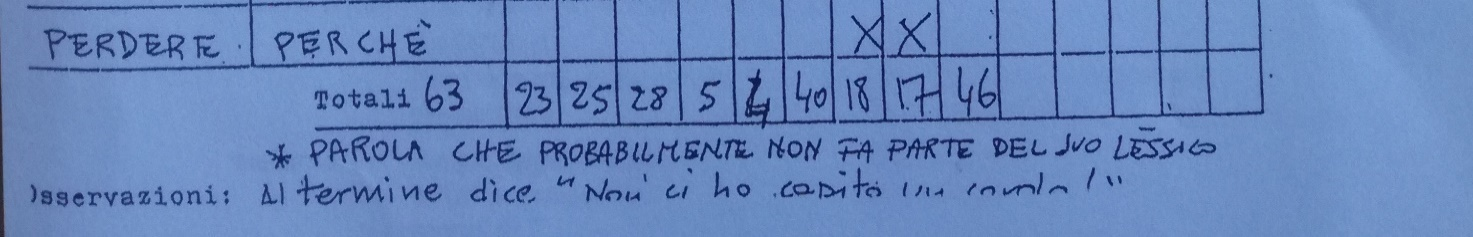 PERDERE. PERCHÈ X X
Totali 63 23 25 28 5 4 40 18 17 46
* PAROLA CHE PROBABILMENTE NON FA PARTE DEL SUO LESSICO
Osservazioni: Al termine dice "Non ci ho capito